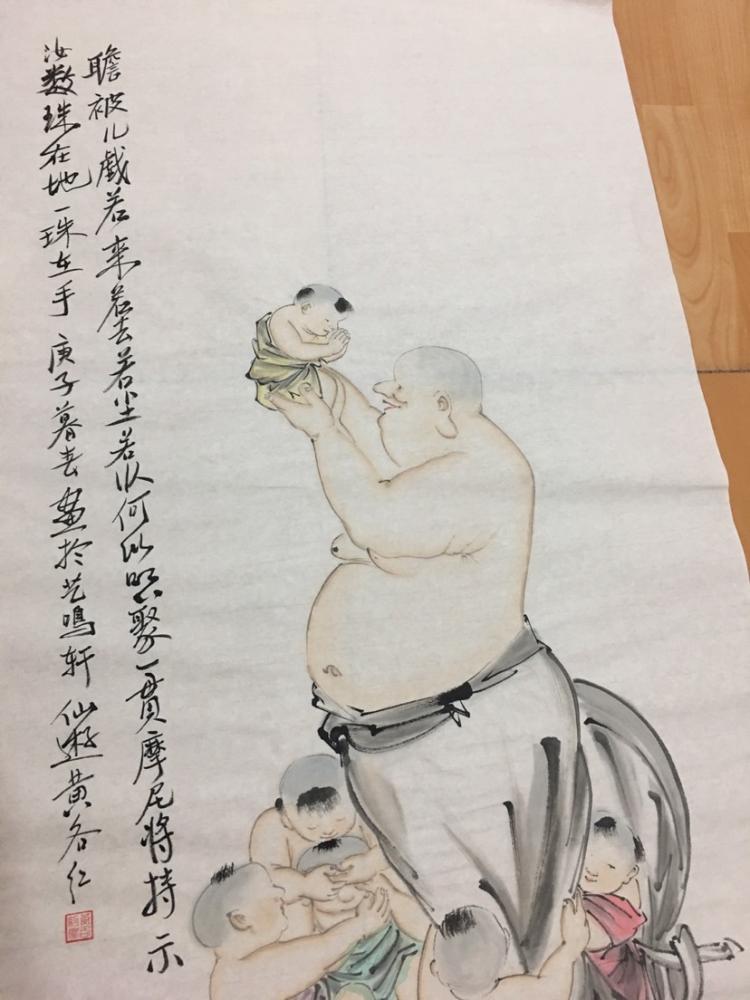 瞻被儿戲若来若去若尘若从何以明聚一貫摩尼將持示
汝数珠在地一珠在手 庚子暮春畫於艺鳴轩 仙遊黄谷仁